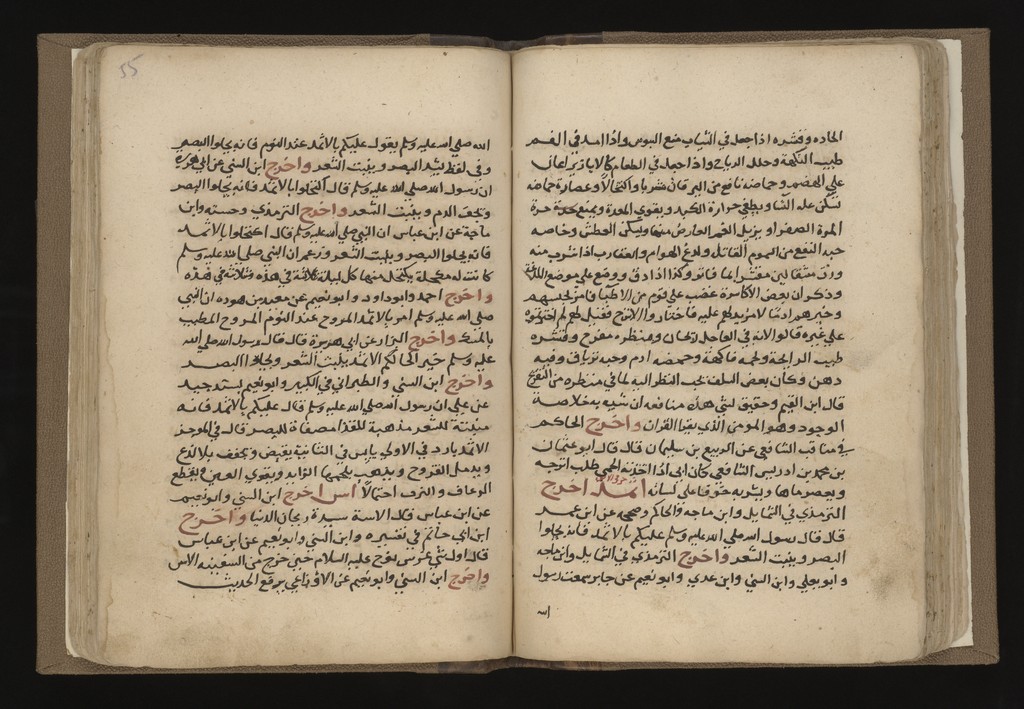 الحاده وقشره اذا جعل في الثياب منع السوس واذا امسك في الفم
طيب النكهة وحلل الرياح واذا جعل في الطعام كالابازير اعان
علي الهضم وحماضه نافع من اليرقان شربا واكتحالا وعصارة حماضه
تسكن غلمة النسا ويطفي حرارة الكبد ويقوي المعدة ويمنع حدة
المرة الصفرا ويزيل الغم العارض منها ويسكن العطش وخاصه
حبه النفع من السموم القاتله ولدغ الهوام والعقارب اذا شرب منه
وزن مثقالين مقشرا بما فاتر وكذا اذا دق ووضع علي موضع اللدغة
وذكر ان بعض الاكاسرة غضب علي قوم من الاطبا فامر بحبسهم
وخيرهم ادما لا مزيد لهم عليه فاختاروا الاترج فقيل لهم لم اخترتموه
علي غيره قالوا لانه في العاجل ريحان ومنظره مفرح وقشره
طيب الرايحة ولحمه فاكهة وحمضه ادم وحبه ترياق وفيه
دهن وكان بعض السلف يحب النظر اليه لما في منظره من التفريح
قال ابن القيم وحقيق لشي هذه منافعه ان شبه به خلاصة
الوجود وهو المومن الذي يقرا القران واخرج الحاكم
في مناقب الشافعي عن الربيع بن سليمان قال قال ابو عثمان
بن محمد بن ادريس الشافعي كان ابي اذا اخذته الحمي طلب اترجه
ويعصر ماها ويشربه خوفا علي لسانه اثمد اخرج
الترمذي في الشمايل وابن ماجة والحاكم وصححه عن ابن عمر
قال قال رسول الله صلي الله عليه وسلم عليكم بالاثمد فانه يجلوا
البصر وينبت الشعر واخرج الترمذي في الشمايل وابن ماجه
وابو يعلي وابن السني وابن عدي وابو نعيم عن جابر سمعت رسول
الله
55
الله صلي الله عليه وسلم يقول عليكم بالاثمد عند النوم فانه يجلوا البصر
وفي لفظ يشد البصر وينبت الشعر واخرج ابن السني عن ابي هريرة
ان رسول الله صلي الله عليه وسلم قال اكتحلوا بالاثمد فانه يجلوا البصر
ويجفف الدم وينبت الشعر واخرج الترمذي وحسنه وابن
ماجة عن ابن عباس ان النبي صلي الله عليه وسلم قال اكتحلوا بالاثمد
فانه يجلوا البصر وينبت الشعر وزعم ان النبي صلي الله عليه وسلم
كانت له مكحلة يكتحل منها كل ليلة ثلاثة في هذه وثلاثة في هذه
واخرج احمد وابو داود وابو نعيم عن معبد بن هوده ان النبي
صلي الله عليه وسلم امر بالاثمد المروح عند النوم المروح المطيب
بالمسك واخرج البزار عن ابي هريرة قال قال رسول الله صلي الله
عليه وسلم خير اكحالكم الاثمد ينبت الشعر ويجلوا البصر
واخرج ابن السني والطبراني في الكبير وابو نعيم بسند جيد
عن علي ان رسول الله صلي الله عليه وسلم قال عليكم بالاثمد فانه
منبتة للشعر مذهبة للقذا مصفاة للبصر قال في الموجز
الاثمد بارد في الاولي يابس في الثانية يقبض ويجفف بلا لذع
ويدمل القروح ويذهب بلحمها الزايد ويقوي العين ويقطع
الرعاف والنزف احتمالا آس اخرج ابن السني وابو نعيم
عن ابن عباس قال الاسة سيدة ريحان الدنيا واخرج
ابن ابي حاتم في تفسيره وابن السني وابو نعيم عن ابن عباس
قال اول شي غرس نوح عليه السلام حين خرج من السفينه الاس
واخرج ابن السني وابو نعيم عن الاوزاعي يرفع الحديث